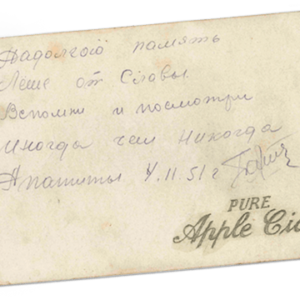 На долгою память
Леше от Славы
Вспомни и посмотри
Иногда чем никогда
Апатиты 4.11.51 г
PURE
Apple Ci